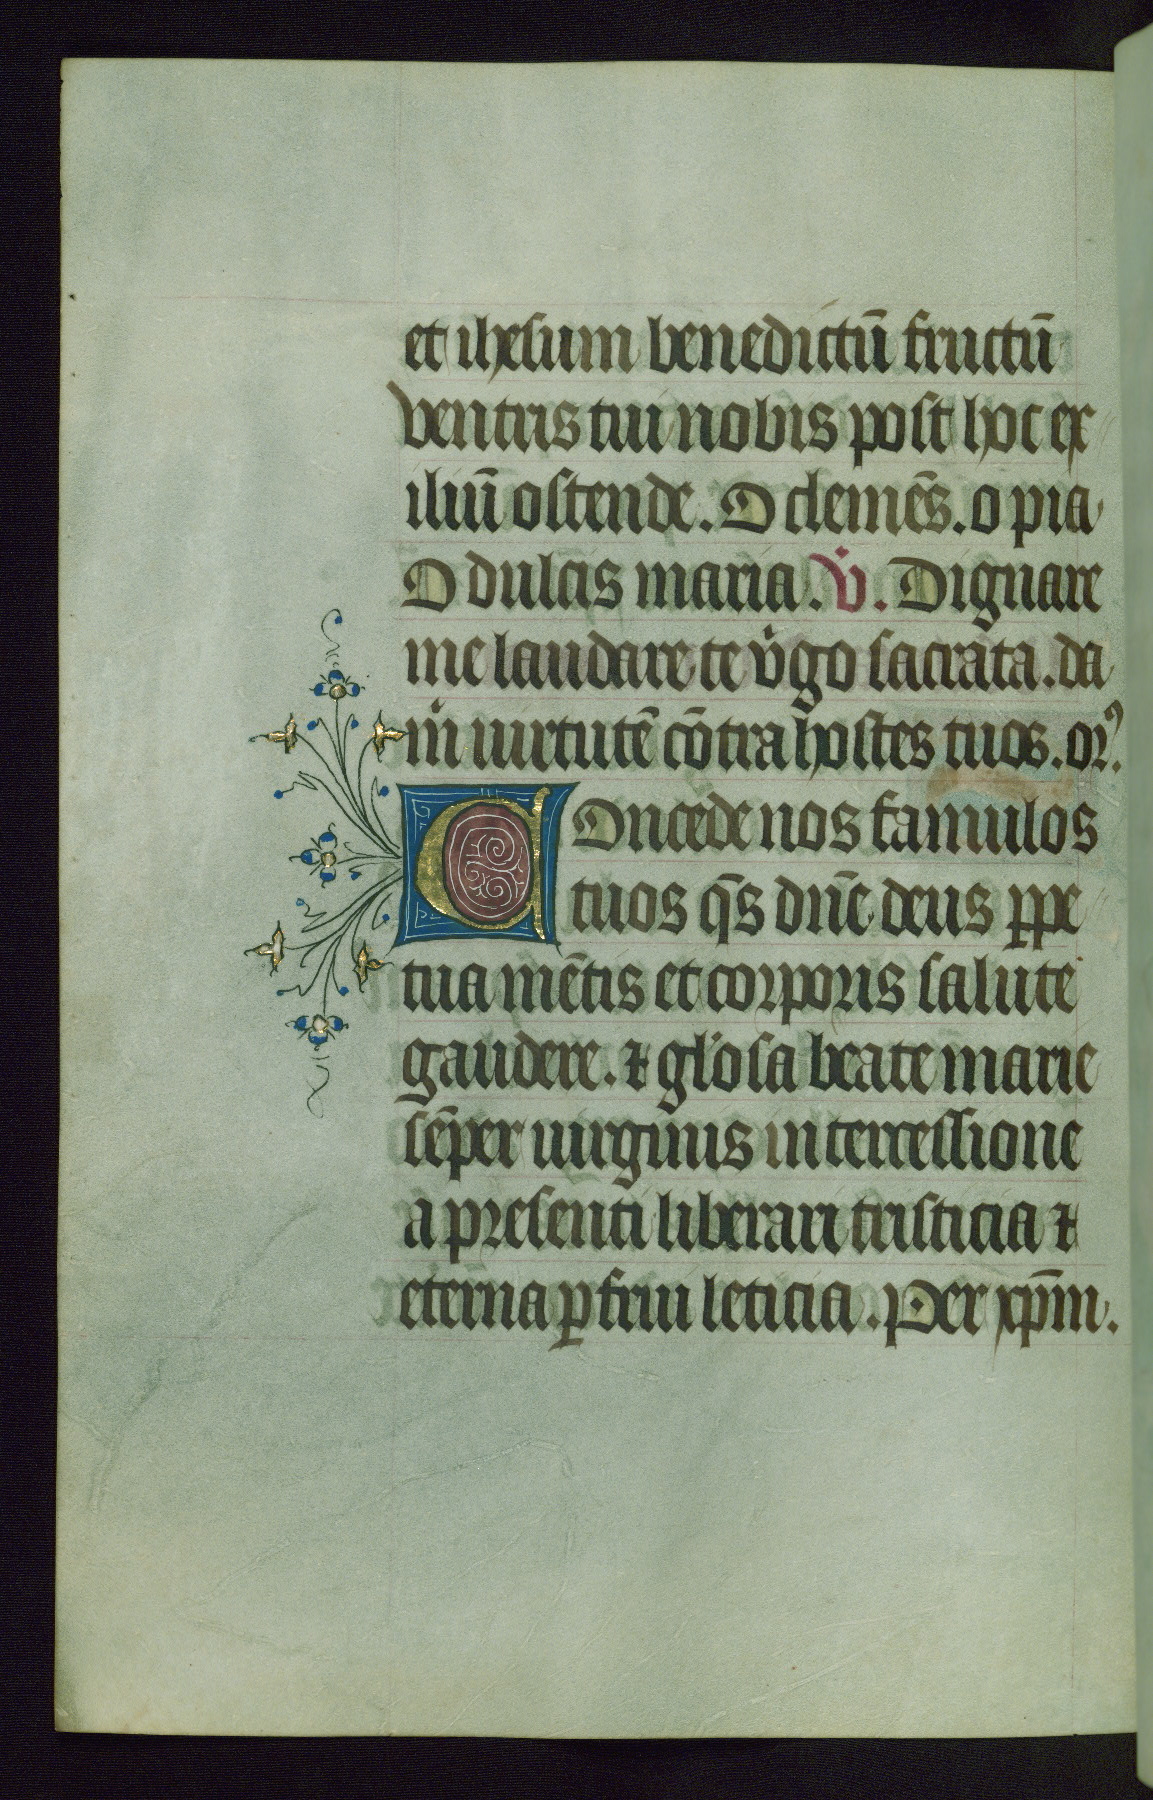 et ihesum benedictū fructū
ventris tui nobis post hoc ex
iliū ostende. O clemēs. o pia
O dulcis maria. V̊. Dignare
me laudare te v̊go sacrata. da
m̊ uirtutē cōtra hostes tuos. orꝰ.
Concede nos famulos
tuos q̄s dn̄e deus ꝑpe
tua mētis et corporis salute
gaudere. ⁊ gl̓osa beate marie
sēper uirginis intercessione
a presenti liberari tristicia ⁊
eterna ꝑfrui leticia. Per xp̄m.